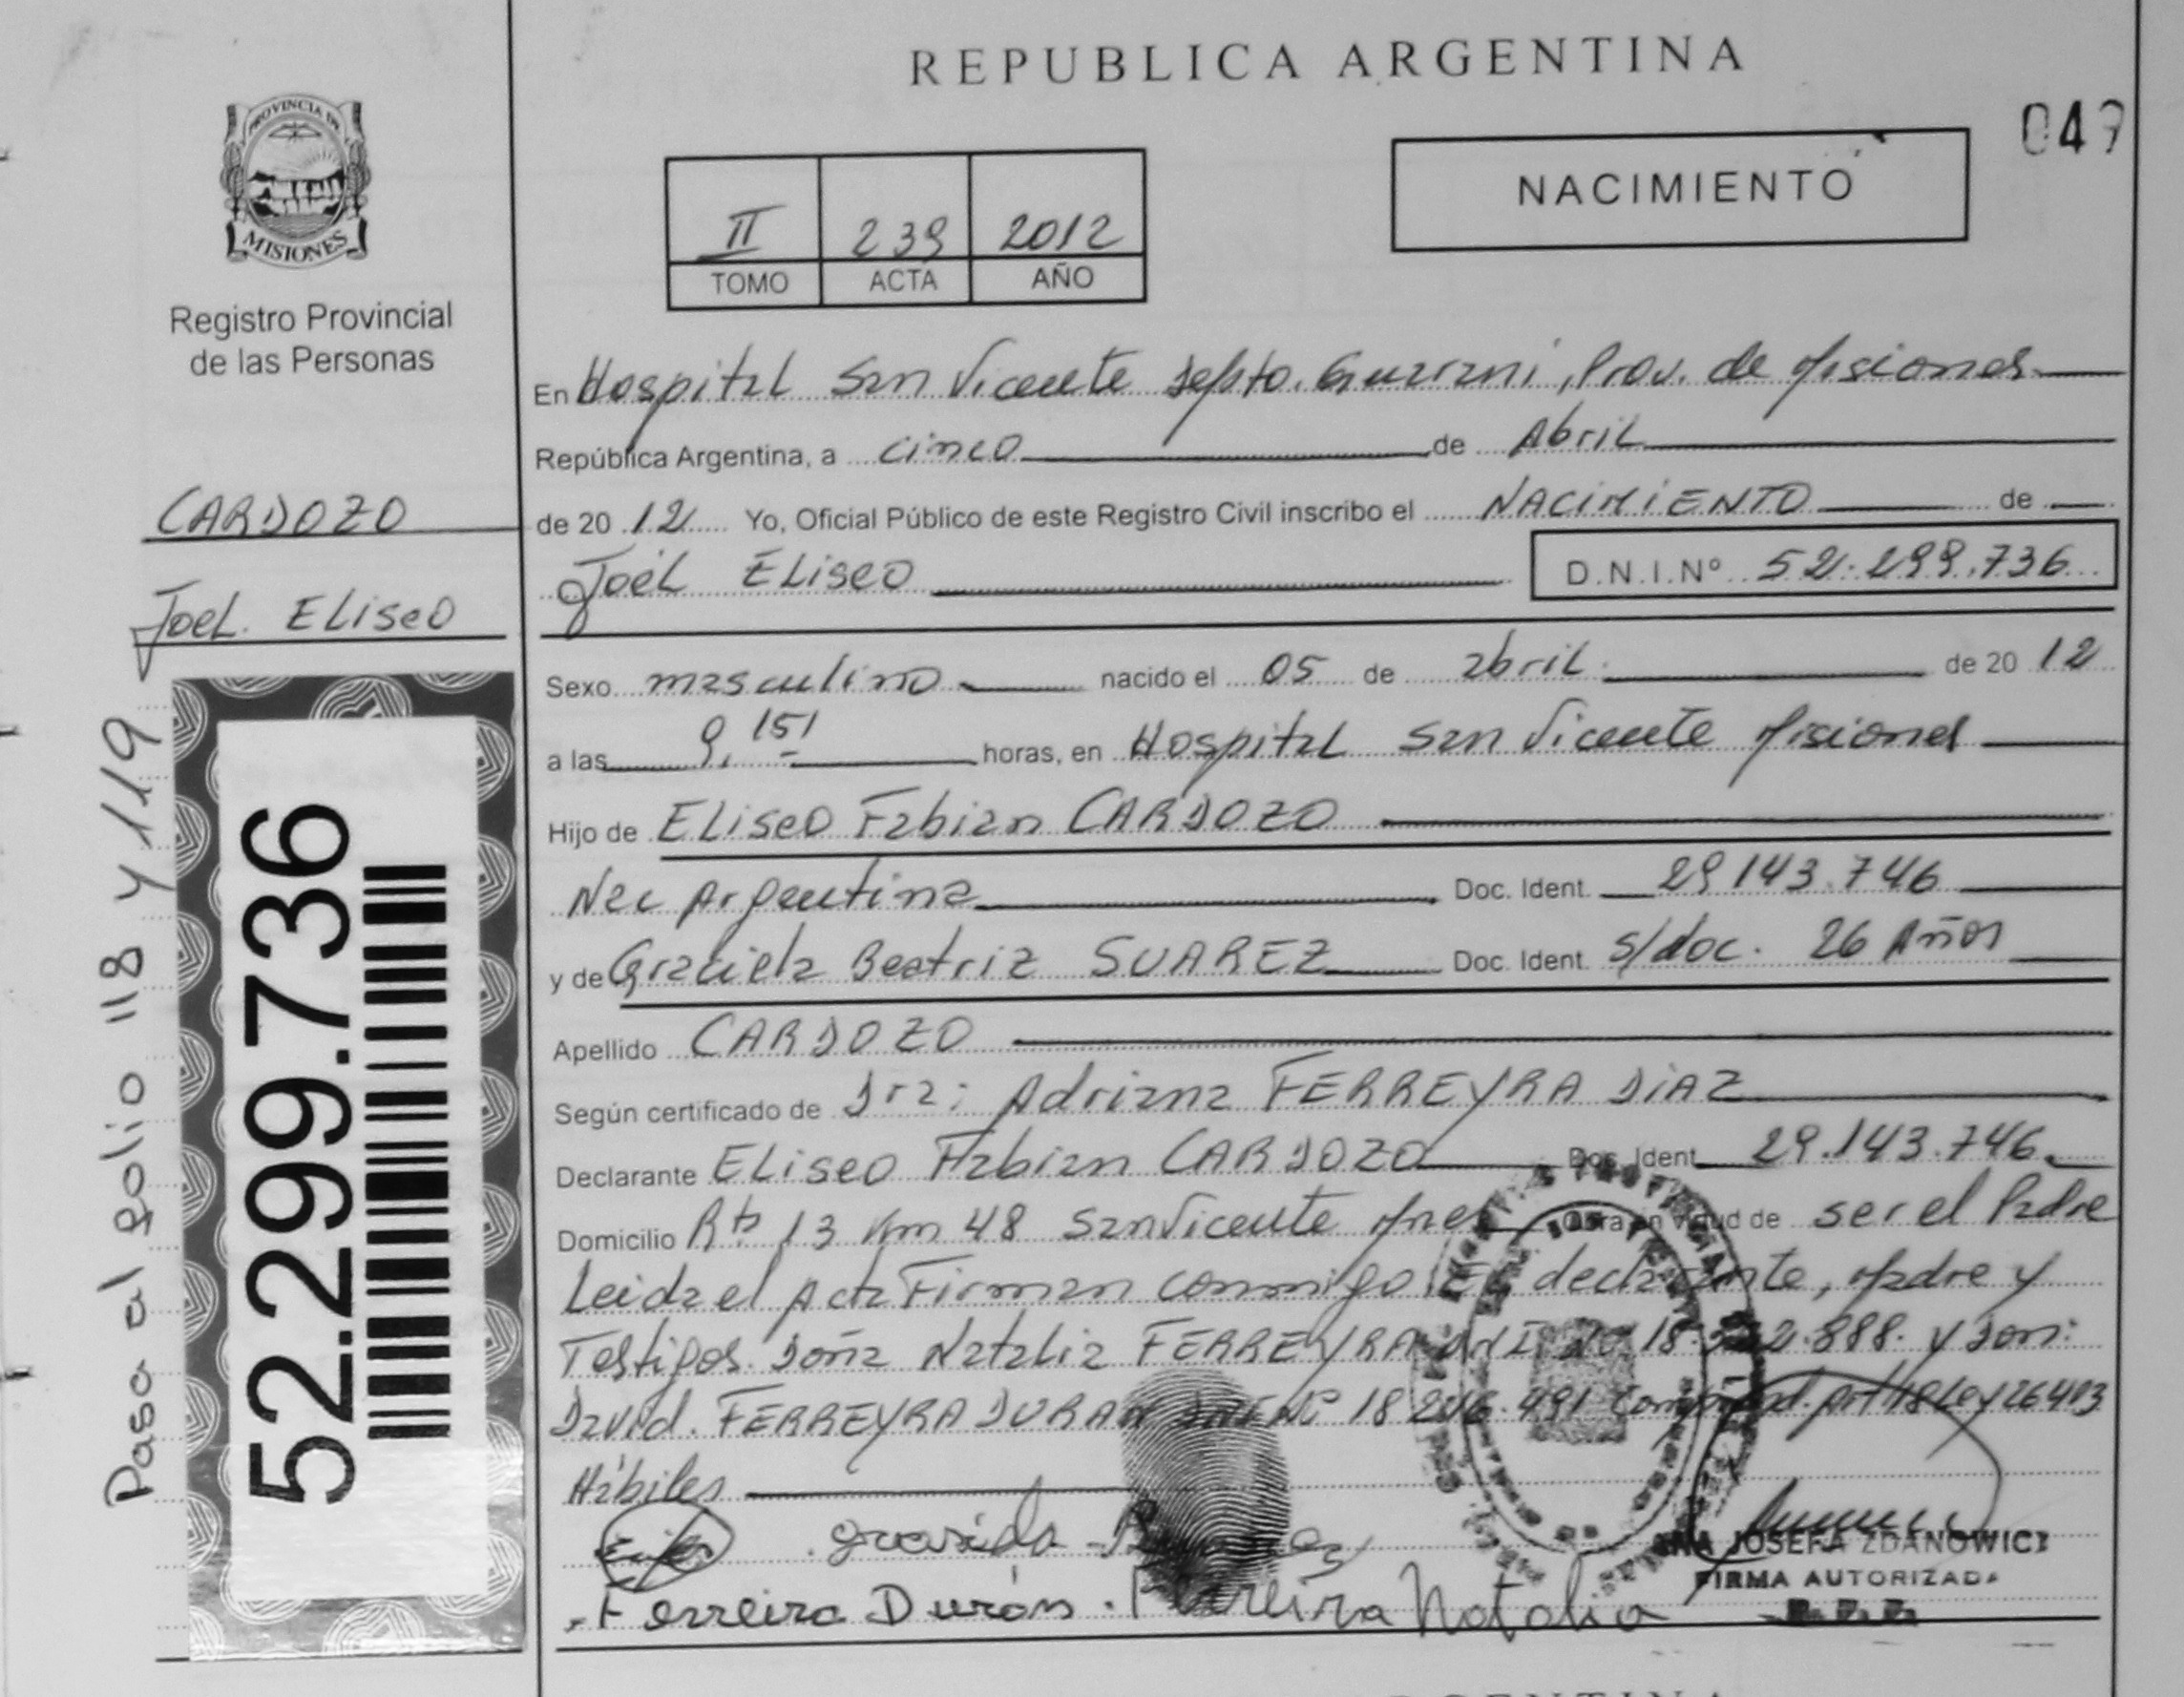 REPUBLICA ARGENTINA
049
PROVINCIA DE
MISIONES
Registro Provincial
de las Personas
NACIMIENTO
II 239 2012
TOMO ACTA AÑO
CARDOZO
Joel. Eliseo
Paso al folio 118 y 119
52.299.736
En Hospital San Vicente Depto. Guarani, Prov. de Misiones
República Argentina, a cinco de Abril
de 2012 Yo, Oficial Público de este Registro Civil inscribo el NACIMIENTO de
Joel Eliseo D.N.I.Nº 52.299.736
Sexo masculino nacido el 05 de abril de 2012
a las 9,15 horas, en Hospital San Vicente Misiones
Hijo de Eliseo Fabian CARDOZO
Nac Argentina Doc. Ident. 29143.746
y de Graciela Beatriz SUAREZ Doc. Ident. s/doc. 26 Años
Apellido CARDOZO
Según certificado de Dra: Adriana FERREYRA DIAZ
Declarante Eliseo Fabian CARDOZO Doc. Ident. 29.143.746
Domicilio Rta 13 Km 48 San Vicente Mnes Obra en virtud de ser el Padre
Leida el Acta Firman conmigo el declarante, Madre y
Testigos. Doña Natalia FERREYRA DNI Nº 18. 888. y Don:
David. FERREYRA DURAN DNI Nº 18 491 Art 18 Ley 26413
Hábiles
Ferreira Durán. Ferreira Natalia
ANA JOSEFA ZDANOWICZ
FIRMA AUTORIZADA